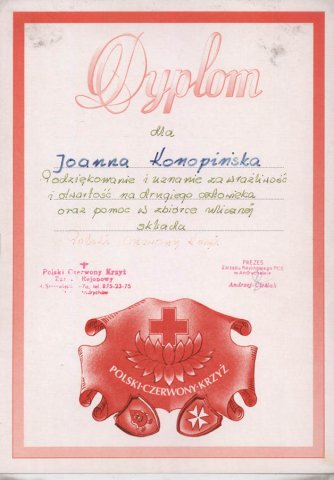 Dyplom
dla
Joanna Konopińska
Podziękowanie i uznanie za wrażliwość
i otwartość na drugiego człowieka
oraz pomoc w zbiórce ulicznej
składa
Polski Czerwony Krzyż
Polski Czerwony Krzyż
Zarząd Rejonowy
tel. 875-23-75
Andrychów
PREZES
Zarządu Rejonowego PCK
w Andrychowie
Andrzej
POLSKI·CZERWONY·KRZYŻ